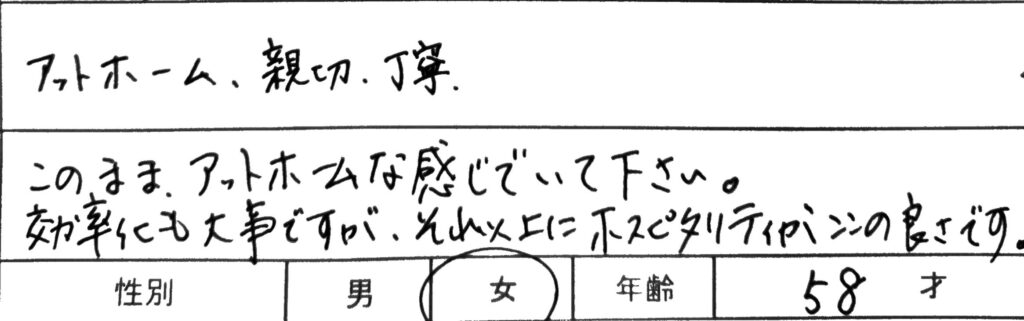 アットホーム、親切、丁寧.
このまま、アットホームな感じでいて下さい。
効率化も大事ですが、それ以上にホスピタリティがココの良さです。
性別 男 女 年齢 58 才